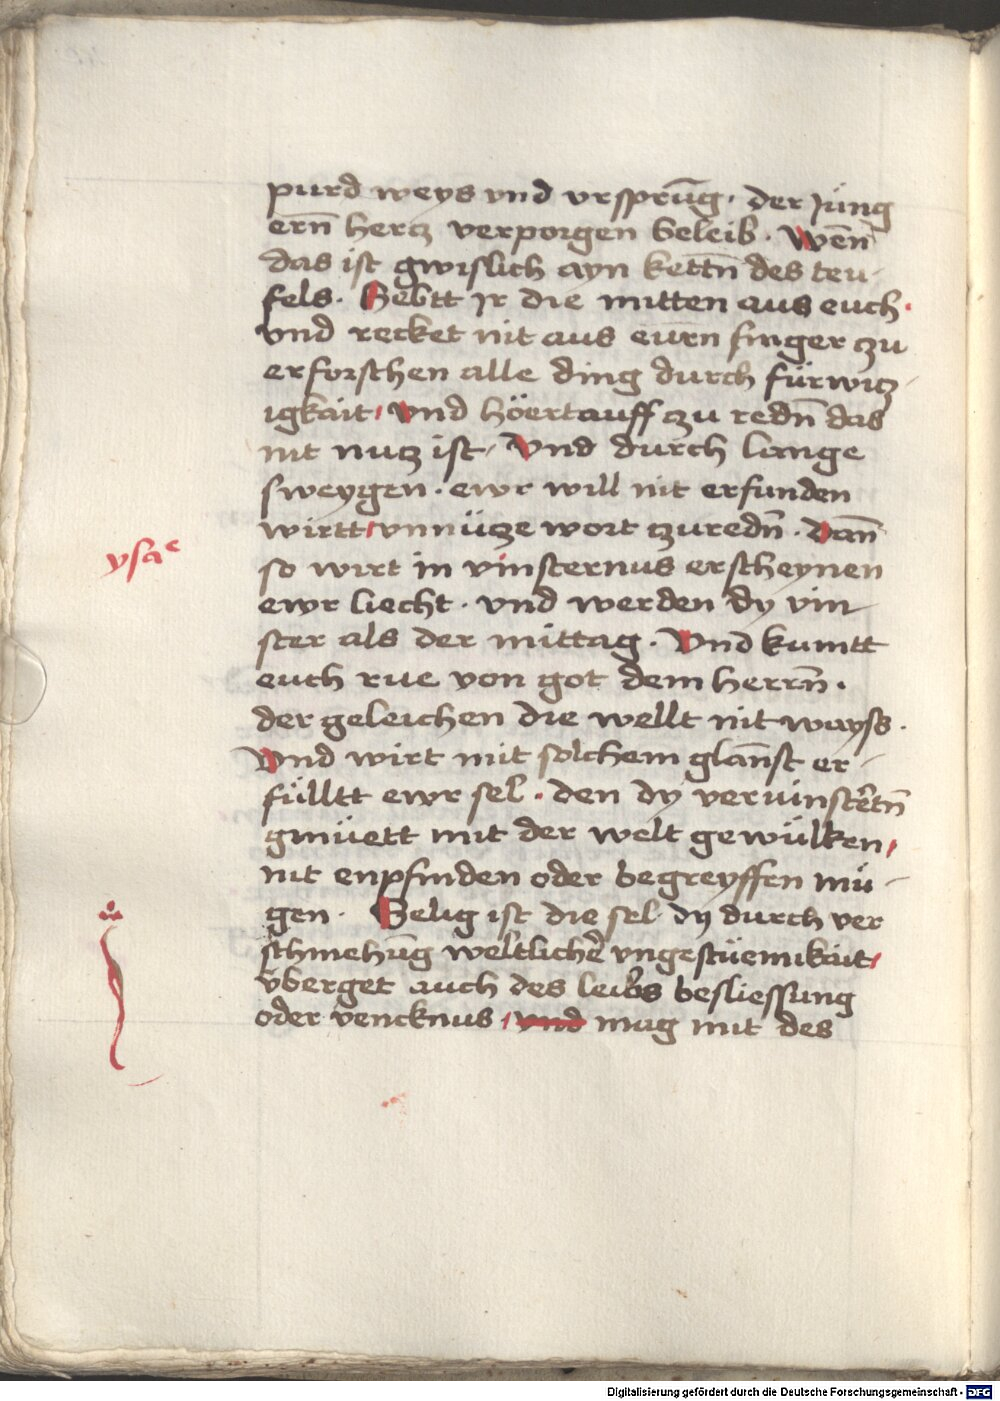 purd weys vnd vrsprūg · der jüng
ern̄ hertz verporgen beleib · Wēn
das ist gwislich ayn kettn̄ des teu-
fels · Hebtt jr die mitten aus euch ·
vnd recket nit aus eurn finger zu
erforschen alle ding durch fürwitz-
igkäit, Vnd höert auff zu redn̄ das
nit nutz ist, Vnd durch lange
sweygen · ewr will nit erfunden
wirtt, vnnütze wort zuredn̄ · Dan̄
ysae
so wirt in vinsternus erscheynen
ewr liecht · vnd werden dy vin-
ster als der mittag · Vnd kumtt
euch rue von got dem herrn̄ ·
der geleichen die wellt nit wayss ·
Vnd wirt mit solchem glānst er-
fülltt ewr sel · den dy vervinstertn̄
gmüett mit der welt gewülken,
nit enpfinden oder begreyffen mü-
gen · Selig ist die sel · dy durch ver
schmehūg weltlicher ungestüemikäit,
vberget auch des leibs besliessung
oder vencknus, vnd mag mit des
Digitalisierung gefördert durch die Deutsche Forschungsgemeinschaft - DFG